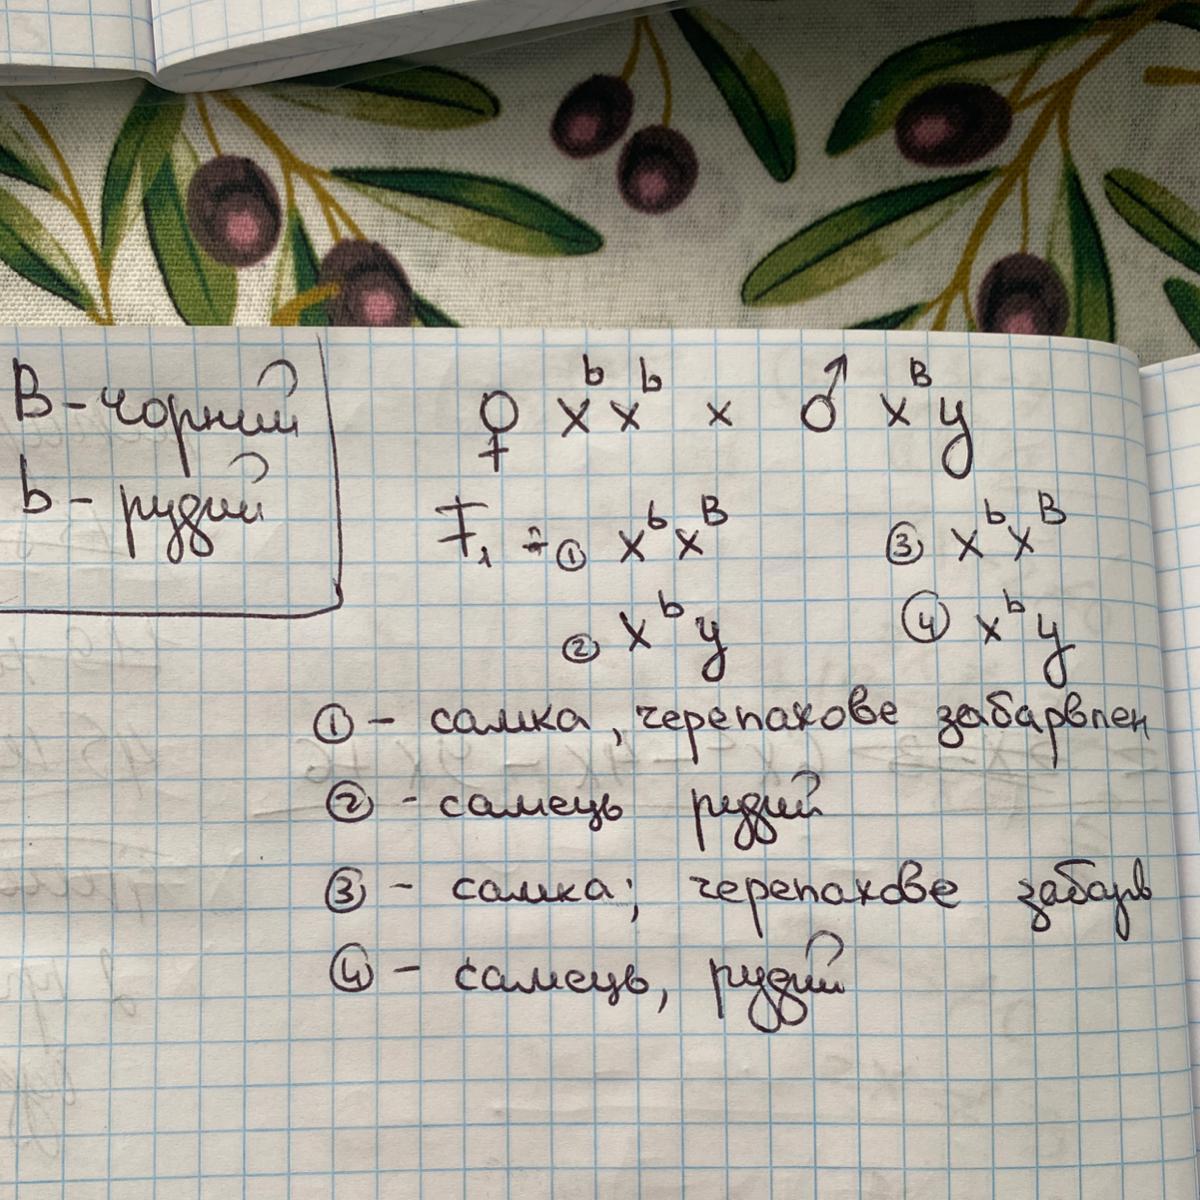 B - чорний
b - рудий
♀ X^b X^b x ♂ X^B y
F₁ ① X^b X^B ③ X^b X^B
② X^b y ④ X^b y
① - самка, черепахове забарвлен
② - самець рудий
③ - самка; черепахове забарв
④ - самець, рудий